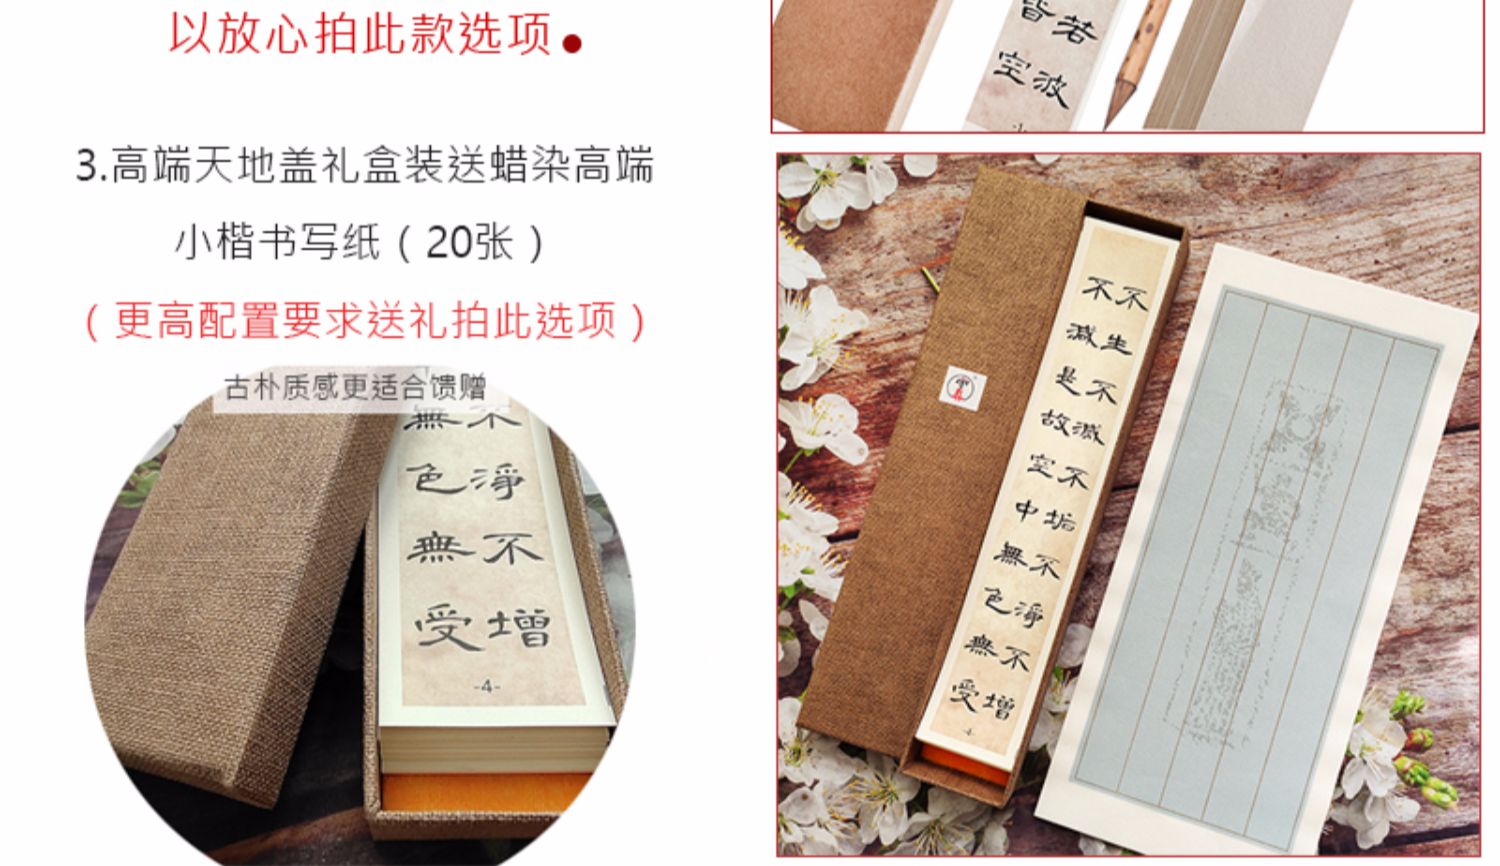 以放心拍此款选项
3.高端天地盖礼盒装送蜡染高端
小楷书写纸（20张）
（更高配置要求送礼拍此选项）
古朴质感更适合馈赠
無不
色淨
無不
受增
-4-
皆若
空波
不不
減生
是不
故滅
空不
中垢
無不
色淨
無不
受增
-4-